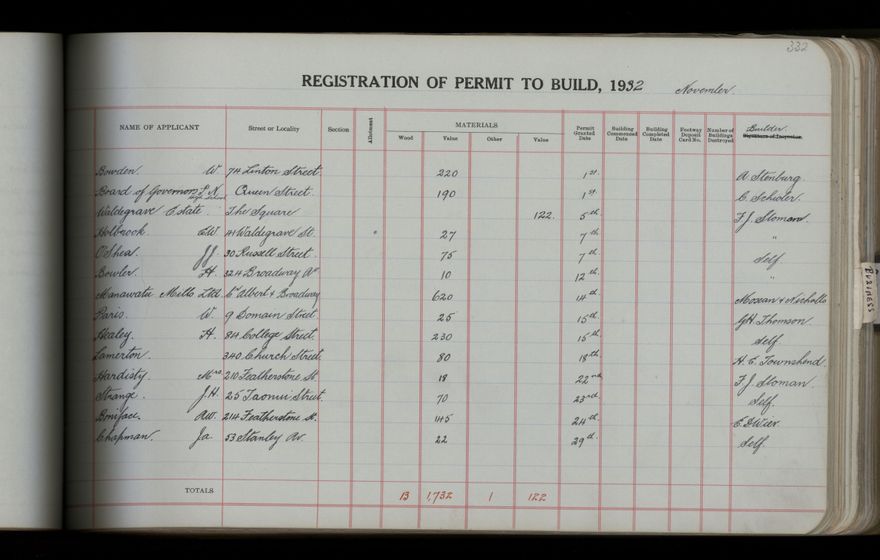 332
REGISTRATION OF PERMIT TO BUILD, 1932 November.
NAME OF APPLICANT Street or Locality Section Allotment MATERIALS Permit Granted Date Building Commenced Date Building Completed Date Footway Deposit Card No. Number of Buildings Destroyed Builder.
Wood Value Other Value
Bowden. W 74 Linton Street 220 1st. A Stenburg
Board of Governors P.N. High School Queen Street. 190 1st. C. Schioler.
Waldegrave Estate. The Square 122. 5th F.J. Sloman.
Holbrook E.W. 41 Waldegrave St. 27 7th "
O'Shea. J.J. 30 Russell Street. 75 7th Self.
Bowler H. 324 Broadway Av 10 12th "
Manawatu Mills Ltd. Cr Albert & Broadway 620 14th Moxan & Nicholls
Paris. W. 9 Domain Street 25 15th GH Thomson
Healey. H. 84 College Street. 230 15th Self.
Lamerton. 340 Church Street 80 18th H. E. Townshend.
Hardisty. Mrs. 210 Featherstone St. 18 22nd F.J. Sloman.
Strange. J.H. 25 Taonui Street. 70 23rd Self.
Boniface. AW. 214 Featherstone St. 145 24th
Chapman. Ja. 53 Stanley Av. 22 29th Self.
TOTALS 13 1,732 1 122
BUSINESS